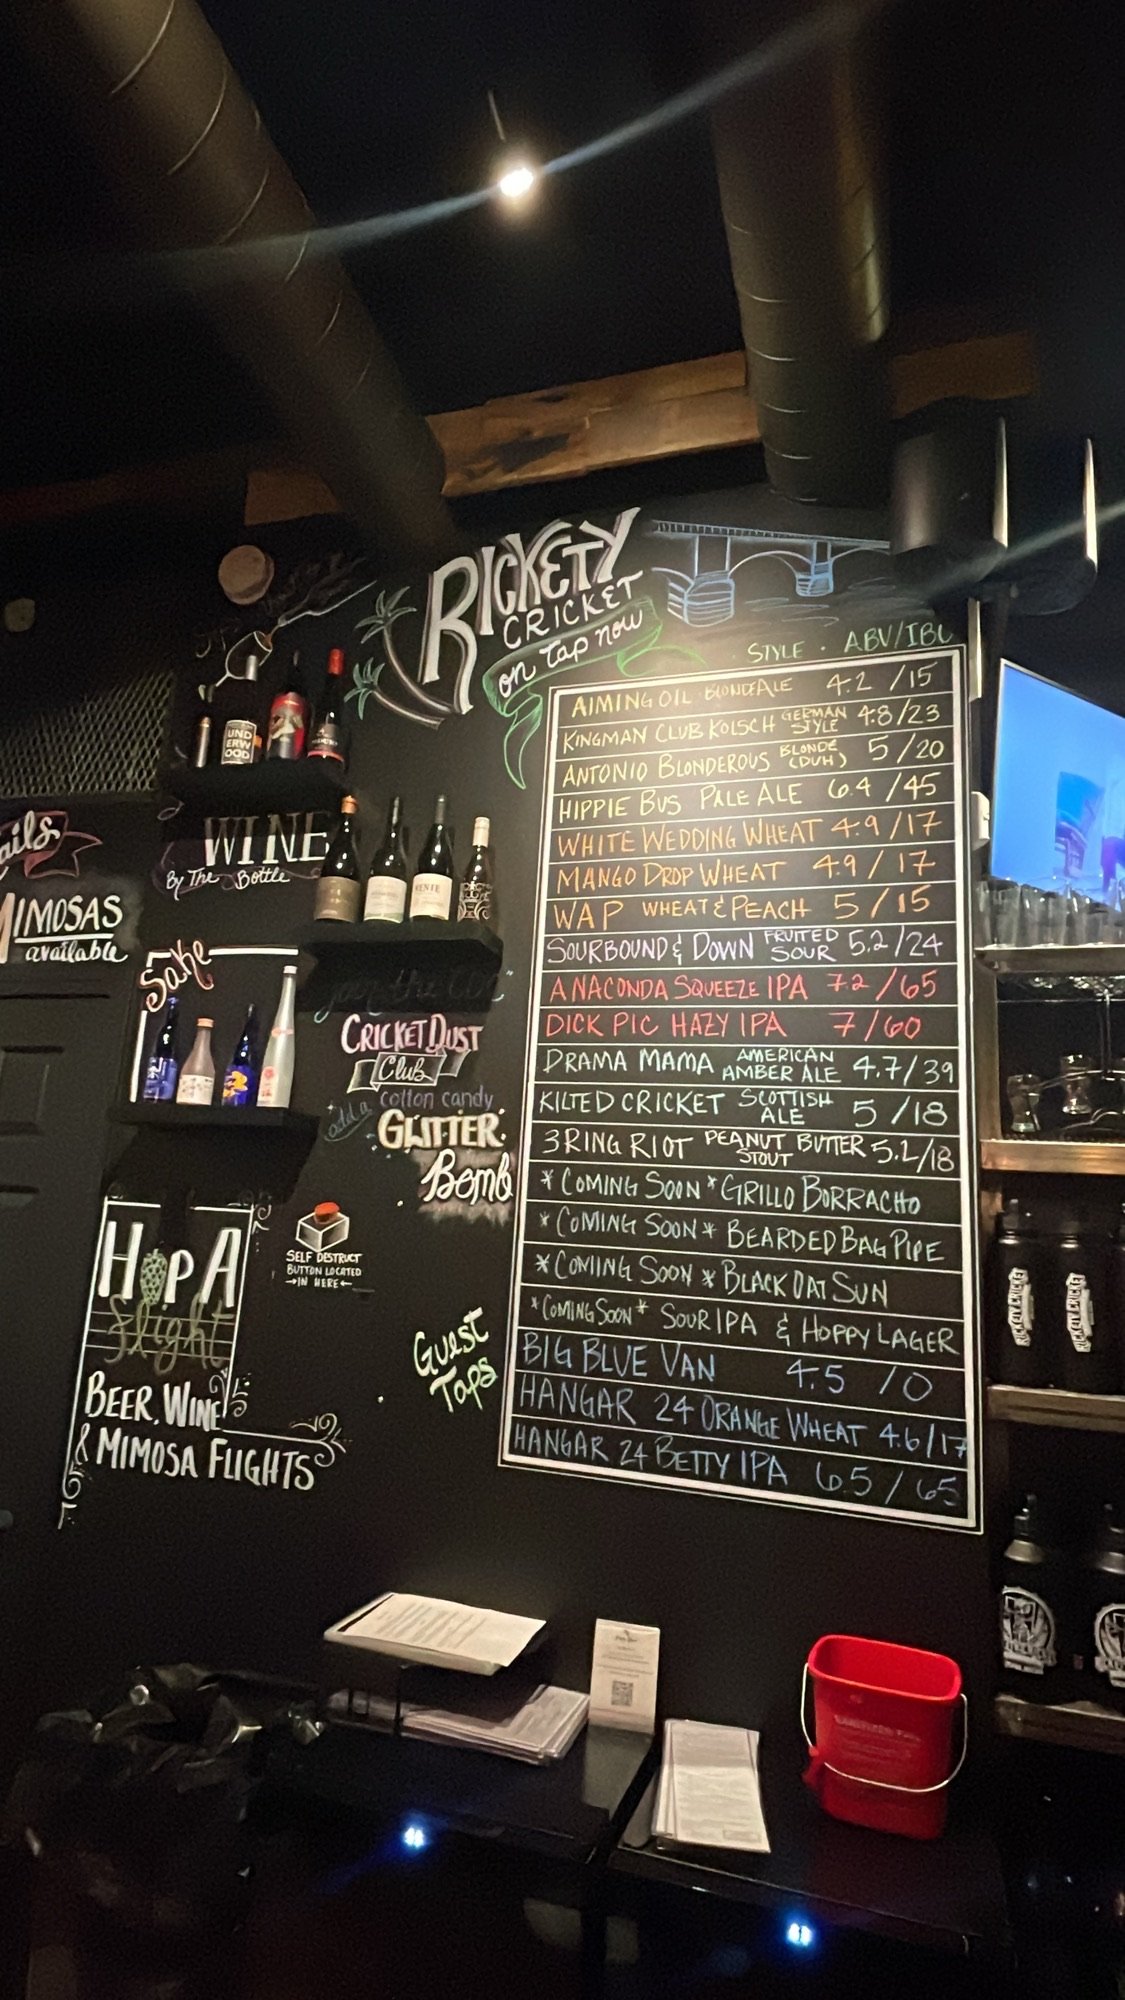 RICKETY
CRICKET
on tap now
STYLE · ABV/IBU
AIMING OIL BLONDE ALE 4.2 /15
KINGMAN CLUB KOLSCH GERMAN STYLE 4.8/23
ANTONIO BLONDEROUS BLONDE (DUH) 5 /20
HIPPIE BUS PALE ALE 6.4 /45
WHITE WEDDING WHEAT 4.9 /17
MANGO DROP WHEAT 4.9 / 17
WAP WHEAT & PEACH 5 /15
SOURBOUND & DOWN FRUITED SOUR 5.2 /24
ANACONDA SQUEEZE IPA 7.2 /65
DICK PIC HAZY IPA 7 /60
DRAMA MAMA AMERICAN AMBER ALE 4.7/39
KILTED CRICKET SCOTTISH ALE 5 /18
3 RING RIOT PEANUT BUTTER STOUT 5.2/18
*COMING SOON* GRILLO BORRACHO
*COMING SOON* BEARDED BAG PIPE
*COMING SOON* BLACK OAT SUN
*COMING SOON* SOUR IPA & HOPPY LAGER
BIG BLUE VAN 4.5 /0
HANGAR 24 ORANGE WHEAT 4.6/17
HANGAR 24 BETTY IPA 6.5 / 65
Guest
Taps
UND
ERW
OOD
WINE
By The Bottle
ails
MIMOSAS
available
Sake
Join the
CRICKET DUST
Club
add a cotton candy
GLITTER
Bomb
SELF DESTRUCT
BUTTON LOCATED
→IN HERE←
HOPA
flight
BEER, WINE
& MIMOSA FLIGHTS
RICKETY CRICKET
RICKETY CRICKET